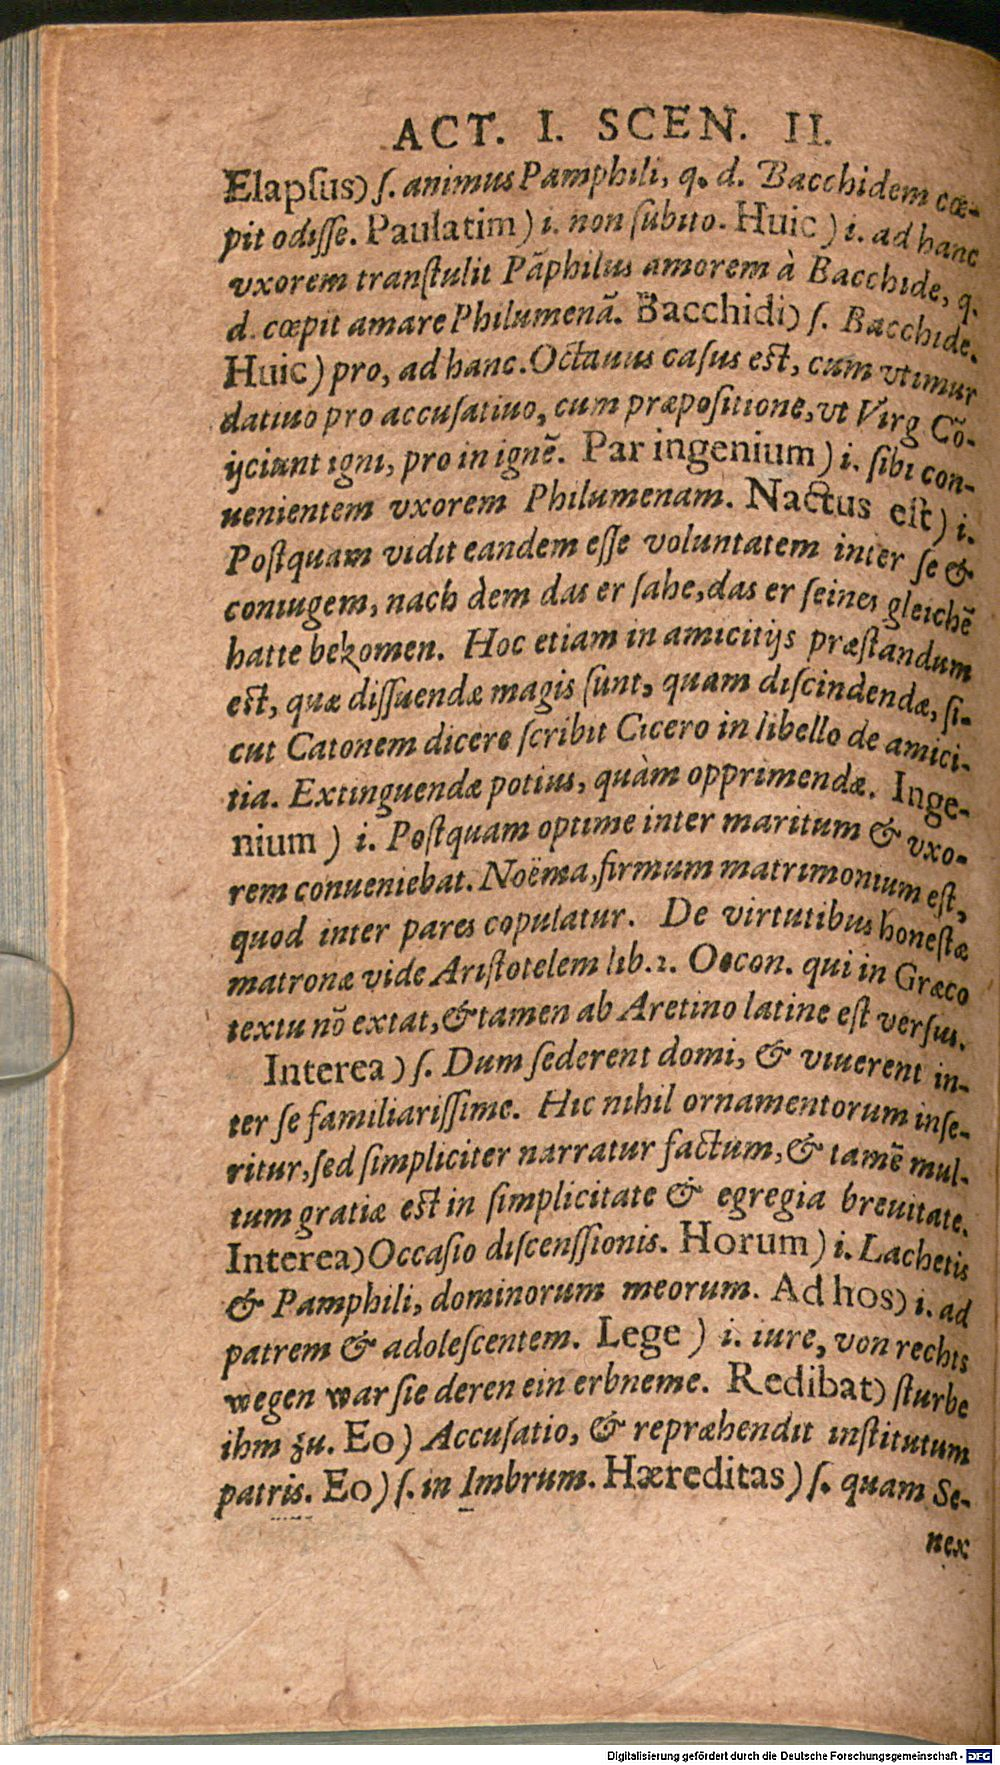 ACT. I. SCEN. II.
Elapſus) ſ. animus Pamphili, q. d. Bacchidem cœ-
pit odiſſe. Paulatim) i. non ſubito. Huic) i. ad hanc
vxorem tranſtulit Pãphilus amorem à Bacchide, q.
d. cœpit amare Philumenã. Bacchidi) ſ. Bacchide.
Huic) pro, ad hanc. Octauus caſus eſt, cum vtimur
datiuo pro accuſatiuo, cum præpoſitione, vt Virg Cõ-
ijciunt igni, pro in ignẽ. Par ingenium) i. ſibi con-
uenientem vxorem Philumenam. Nactus eſt) i.
Poſtquam vidit eandem eſſe voluntatem inter ſe &
coniugem, nach dem das er ſahe, das er ſeines gleichẽ
hatte bekomen. Hoc etiam in amicitijs præſtandum
eſt, quæ diſſuendæ magis ſunt, quam diſcindendæ, ſi-
cut Catonem dicere ſcribit Cicero in libello de amici-
tia. Extinguendæ potius, quàm opprimendæ. Inge-
nium) i. Poſtquam optime inter maritum & vxo-
rem conueniebat. Noëma, firmum matrimonium eſt,
quod inter pares copulatur. De virtutibus honeſtæ
matronæ vide Ariſtotelem lib. 2. Oecon. qui in Græco
textu nõ extat, & tamen ab Aretino latine eſt verſus.
Interea) ſ. Dum ſederent domi, & viuerent in-
ter ſe familiariſſime. Hic nihil ornamentorum inſe-
ritur, ſed ſimpliciter narratur factum, & tamẽ mul-
tum gratiæ eſt in ſimplicitate & egregia breuitate.
Interea) Occaſio diſcenſſionis. Horum) i. Lachetis
& Pamphili, dominorum meorum. Ad hos) i. ad
patrem & adoleſcentem. Lege) i. iure, von rechts
wegen war ſie deren ein erbneme. Redibat) ſturbe
ihm zu. Eo) Accuſatio, & repræhendit inſtitutum
patris. Eo) ſ. in Imbrum. Hæreditas) ſ. quam Se-
nex
Digitalisierung gefördert durch die Deutsche Forschungsgemeinschaft - DFG